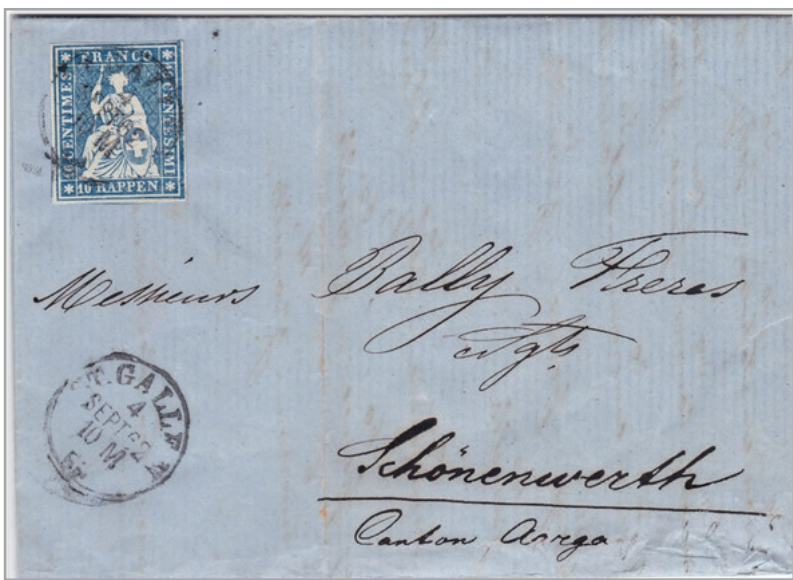 FRANCO
CENTIMES
CENTESIMI
10 RAPPEN
Messieurs Bally Freres
Sgts
ST. GALLEN
4
SEPT 62
10 M
Schönenwerth
Canton Arrga